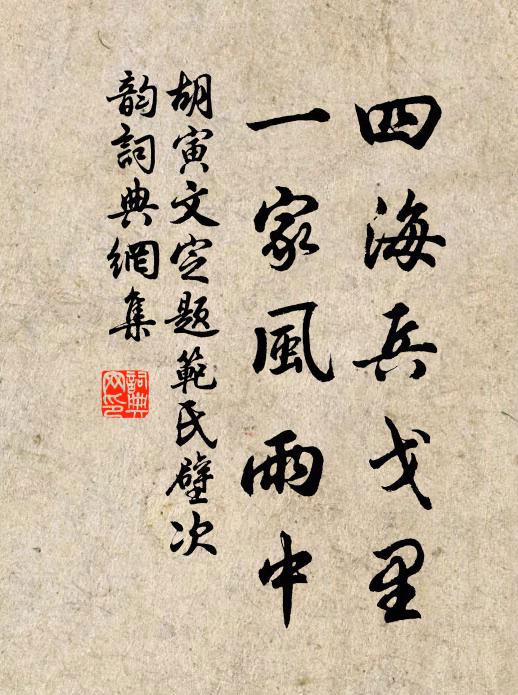 四海兵戈里
一家風雨中
胡寅文定題範氏壁次
韵詞典網集
詞典網印